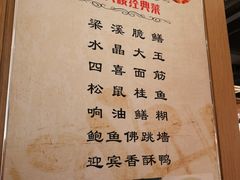 经典菜
梁溪脆鳝
水晶大玉
四喜面筋
松鼠桂鱼
响油鳝糊
鲍鱼佛跳墙
迎宾香酥鸭